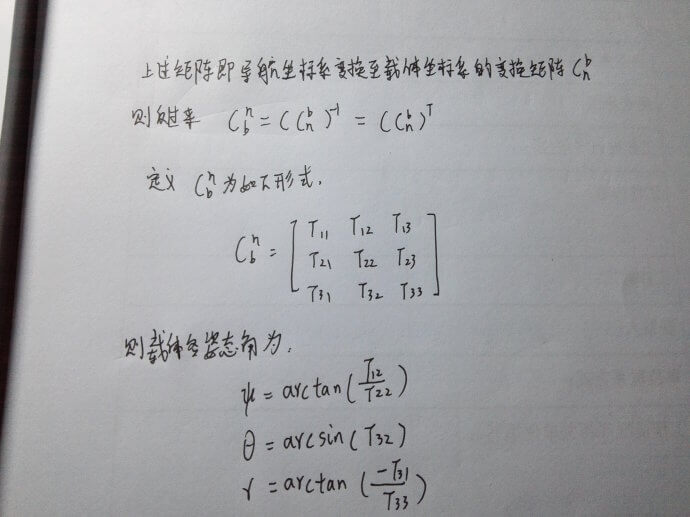 上述矩阵即导航坐标系变换至载体坐标系的变换矩阵 C_n^b
则反过来 C_b^n = (C_n^b)^{-1} = (C_n^b)^T
定义 C_b^n 为如下形式.
C_b^n = [ T_{11} T_{12} T_{13}
T_{21} T_{22} T_{23}
T_{31} T_{32} T_{33} ]
则载体各姿态角为.
ψ = arctan(T_{12}/T_{22})
θ = arcsin(T_{32})
γ = arctan(-T_{31}/T_{33})